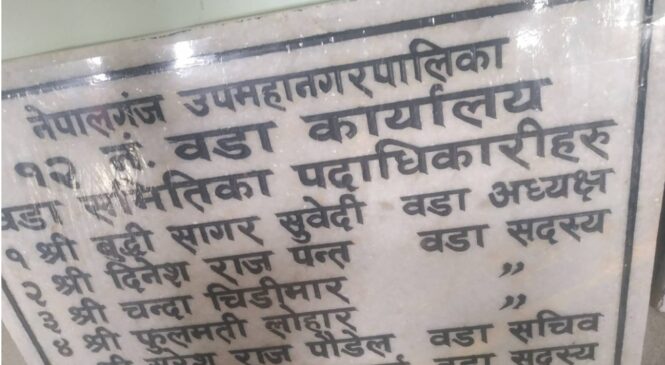 नेपालगंज उपमहानगरपालिका
१२ नं. वडा कार्यालय
वडा समितिका पदाधिकारीहरु
१ श्री बुद्धी सागर सुवेदी वडा अध्यक्ष
२ श्री दिनेश राज पन्त वडा सदस्य
३ श्री चन्दा चिडीमार ,,
४ श्री फुलमती लोहार ,,
श्री सुरेश राज पौडेल वडा सचिव
वडा सदस्य